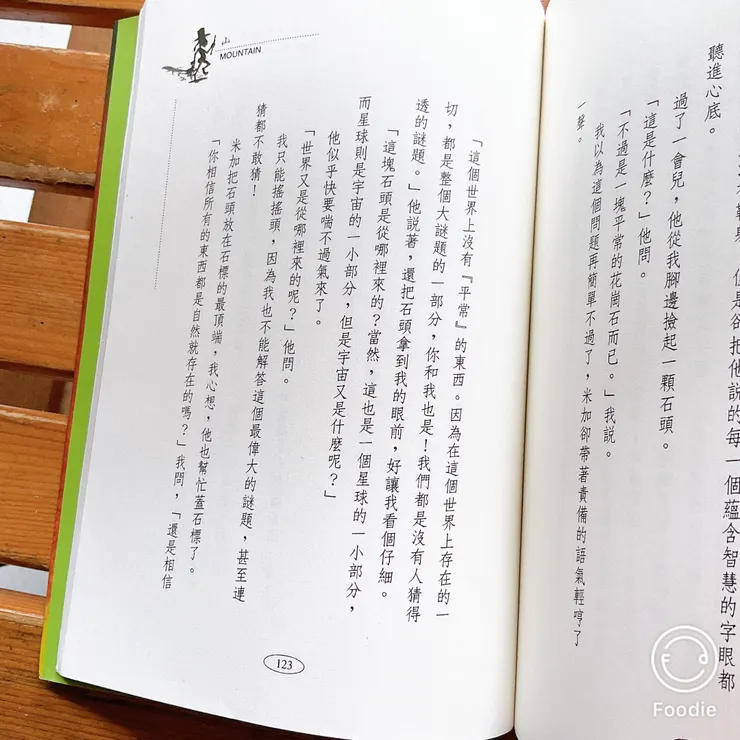 但是卻把他說的每一個蘊含智慧的字眼都
聽進心底。
過了一會兒，他從我腳邊撿起一顆石頭。
「這是什麼？」他問。
「不過是一塊平常的花崗石而已。」我說。
我以為這個問題再簡單不過了，米加卻帶著責備的語氣輕哼了
一聲。
山
MOUNTAIN
「這個世界上沒有『平常』的東西。因為在這個世界上存在的一
切，都是整個大謎題的一部分，你和我也是！我們都是沒有人猜得
透的謎題。」他說著，還把石頭拿到我的眼前，好讓我看個仔細。
「這塊石頭是從哪裡來的？當然，這也是一個星球的一小部分，
而星球則是宇宙的一小部分，但是宇宙又是什麼呢？」
他似乎快要喘不過氣來了。
「世界又是從哪裡來的呢？」他問。
我只能搖搖頭，因為我也不能解答這個最偉大的謎題，甚至連
猜都不敢猜！
米加把石頭放在石標的最頂端，我心想，他也幫忙蓋石標了。
「你相信所有的東西都是自然就存在的嗎？」我問，「還是相信
123
Foodie